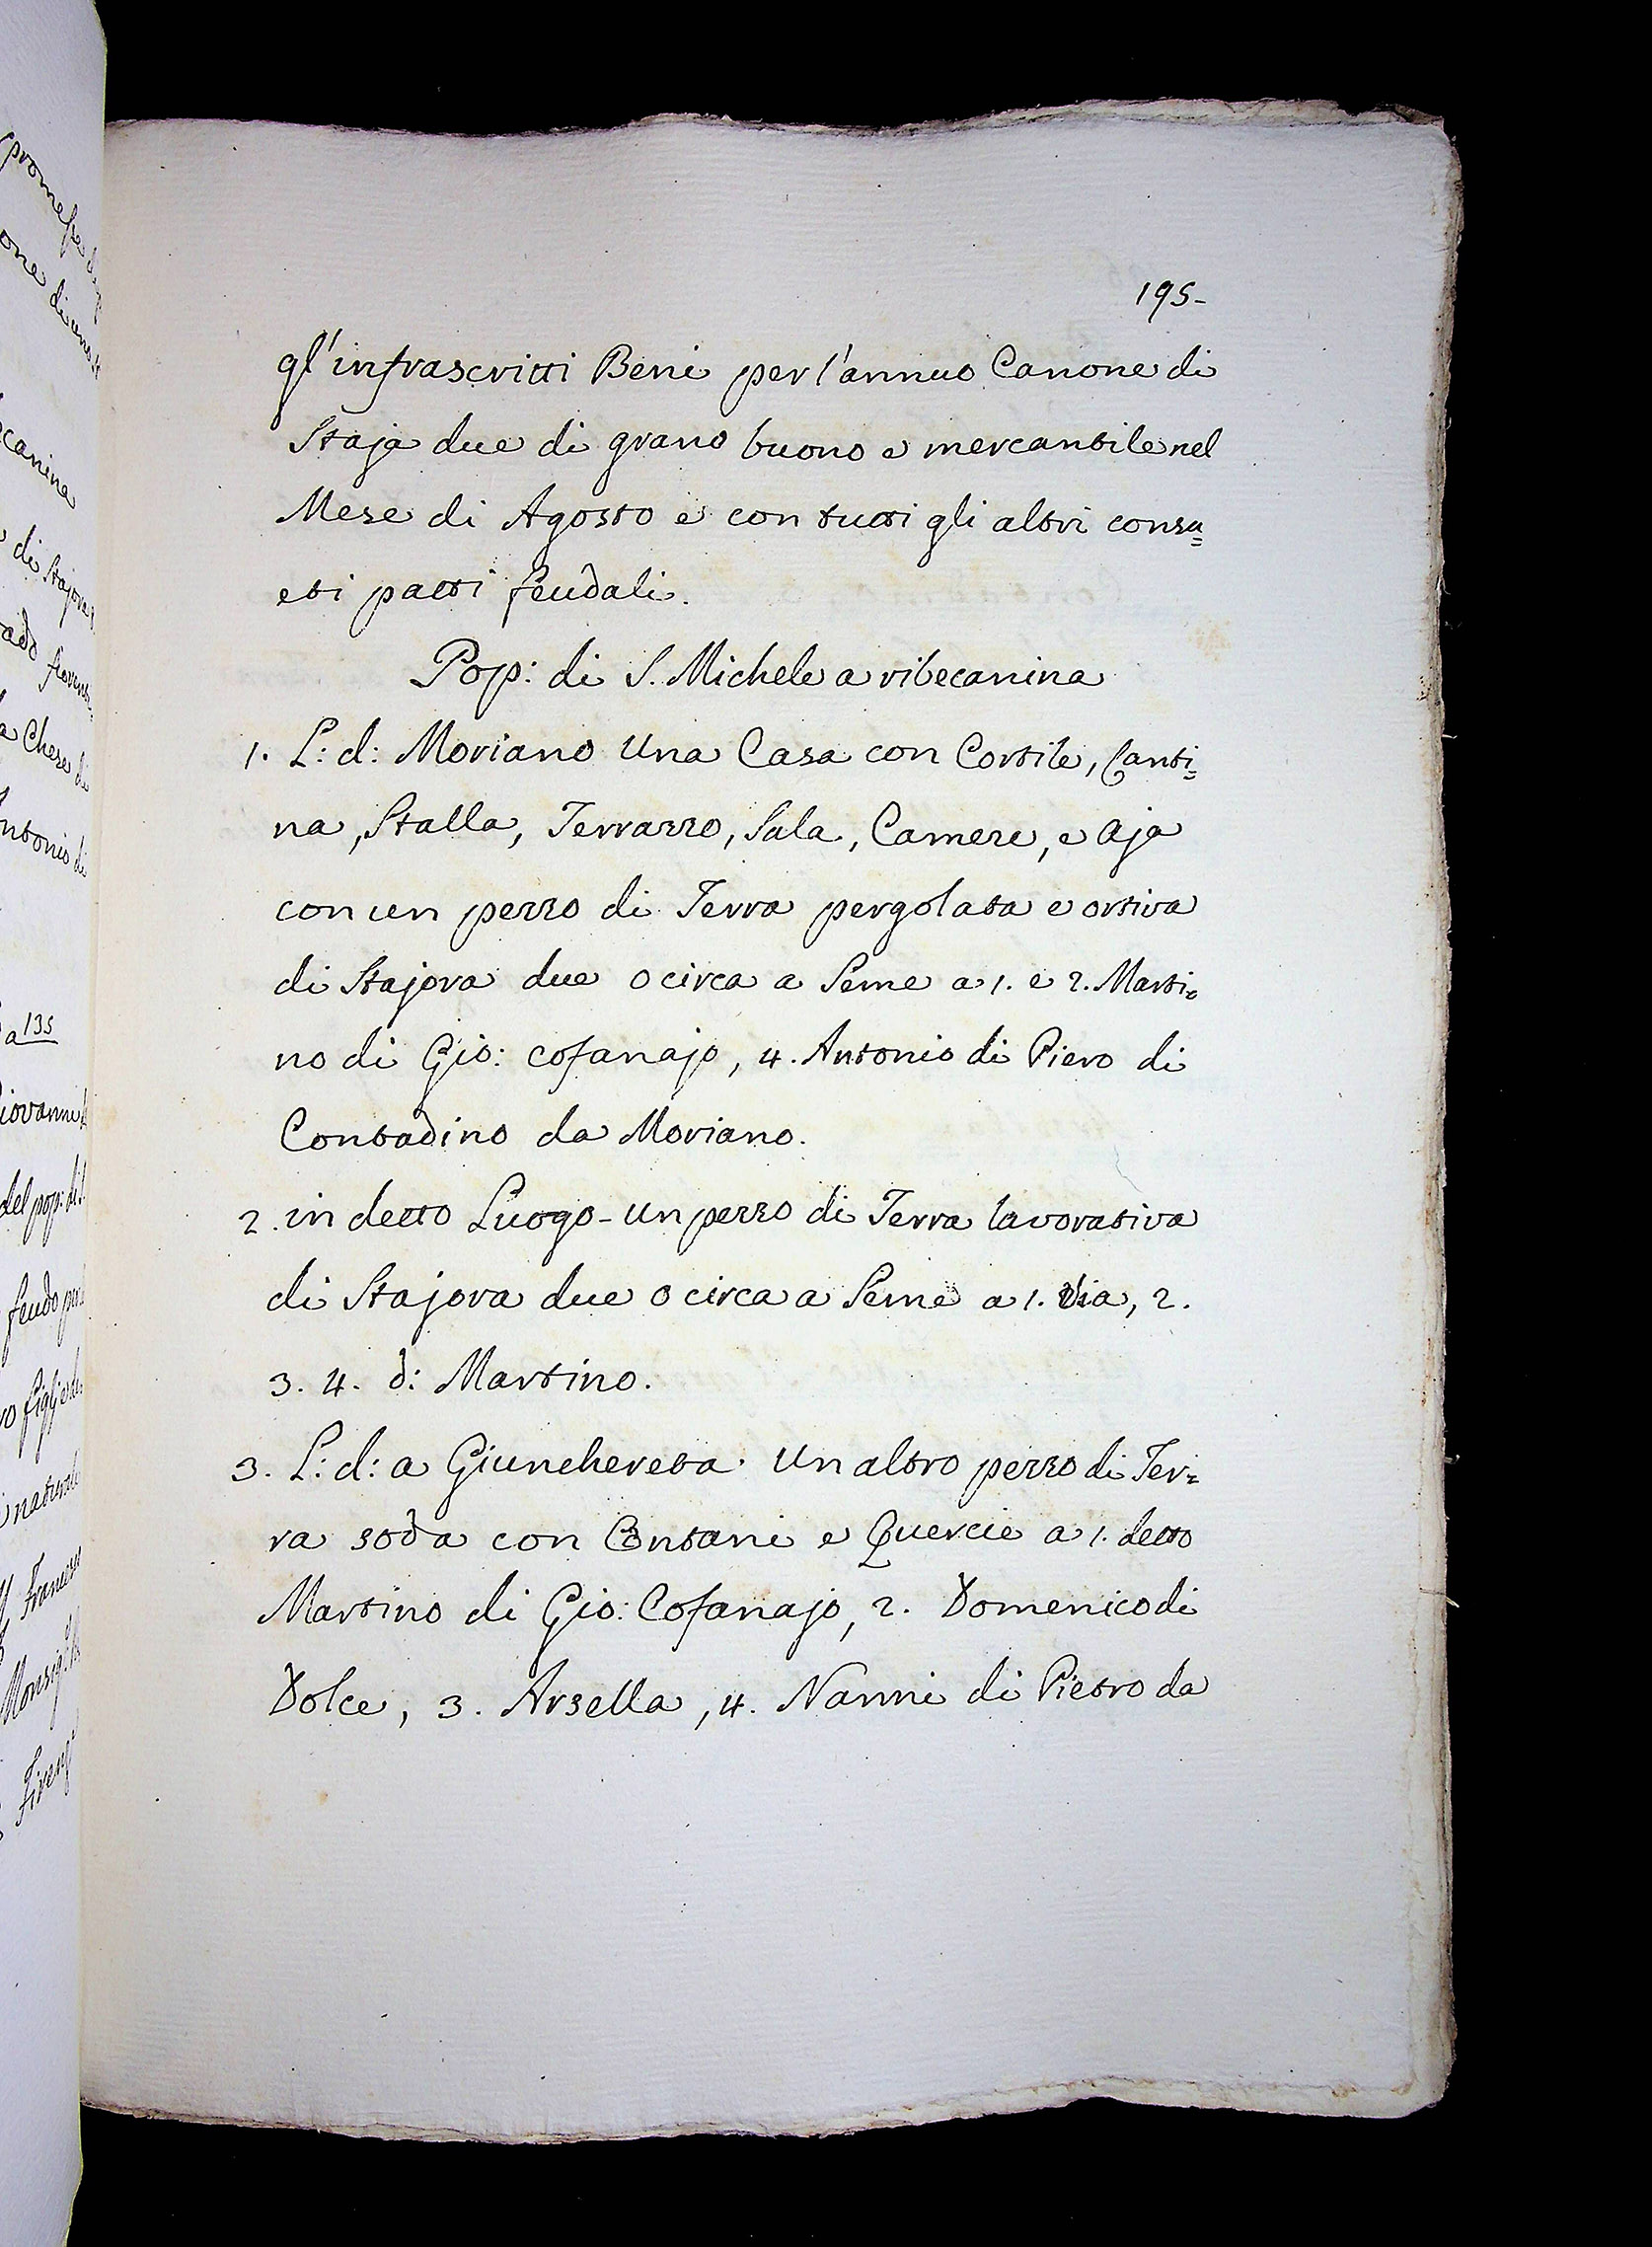 195-
gl'infrascritti Beni per l'annuo Canone di
Staja due di grano buono e mercantile nel
Mese di Agosto e con tutti gli altri consu=
eti patti feudali.
Pop: di S. Michele a ribecanina
1. L: d: Moriano una Casa con Cortile, Canti=
na, Stalla, Terrazzo, Sala, Camere, e aja
con un pezzo di Terra pergolata e ortiva
di Stajora due o circa a Seme a 1. e 2. Marti=
no di Gio: cofanajo, 4. Antonio di Piero di
Contadino da Moriano.
2. in detto Luogo - un pezzo di Terra lavorativa
di Stajora due o circa a Seme a 1. Via, 2.
3. 4. d: Martino.
3. L: d: a Giunchereta un altro pezzo di Ter=
ra soda con Ontani e Quercie a 1. detto
Martino di Gio: Cofanajo, 2. Domenico di
Dolce, 3. Arsella, 4. Nanni di Pietro da
one
canina
di Stajora
ado
Chese di
ntonio di
a 135
iovanni
del pop: di
feudo
figli
naturale
Monsig